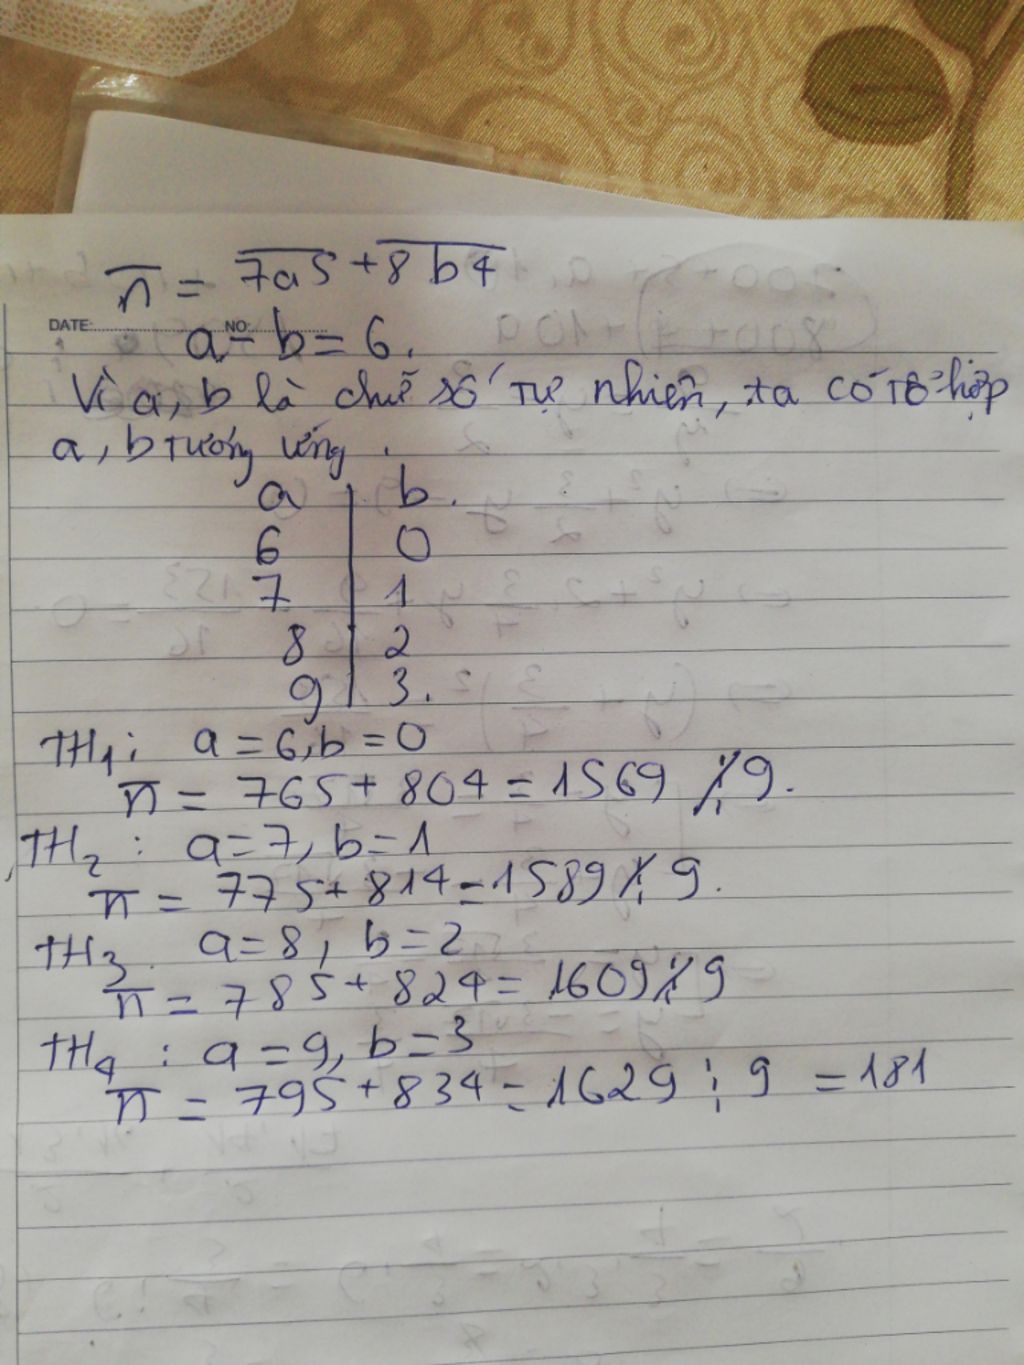 n = 7a5 + 8b4
DATE: NO:
a - b = 6.
Vì a, b là chữ số tự nhiên, ta có tổ hợp
a, b tương ứng.
a | b.
6 | 0
7 | 1
8 | 2
9 | 3.
TH1: a = 6, b = 0
n = 765 + 804 = 1569 ⋮̸ 9.
TH2: a = 7, b = 1
n = 775 + 814 = 1589 ⋮̸ 9.
TH3. a = 8, b = 2
n = 785 + 824 = 1609 ⋮̸ 9
TH4: a = 9, b = 3
n = 795 + 834 = 1629 ⋮ 9 = 181